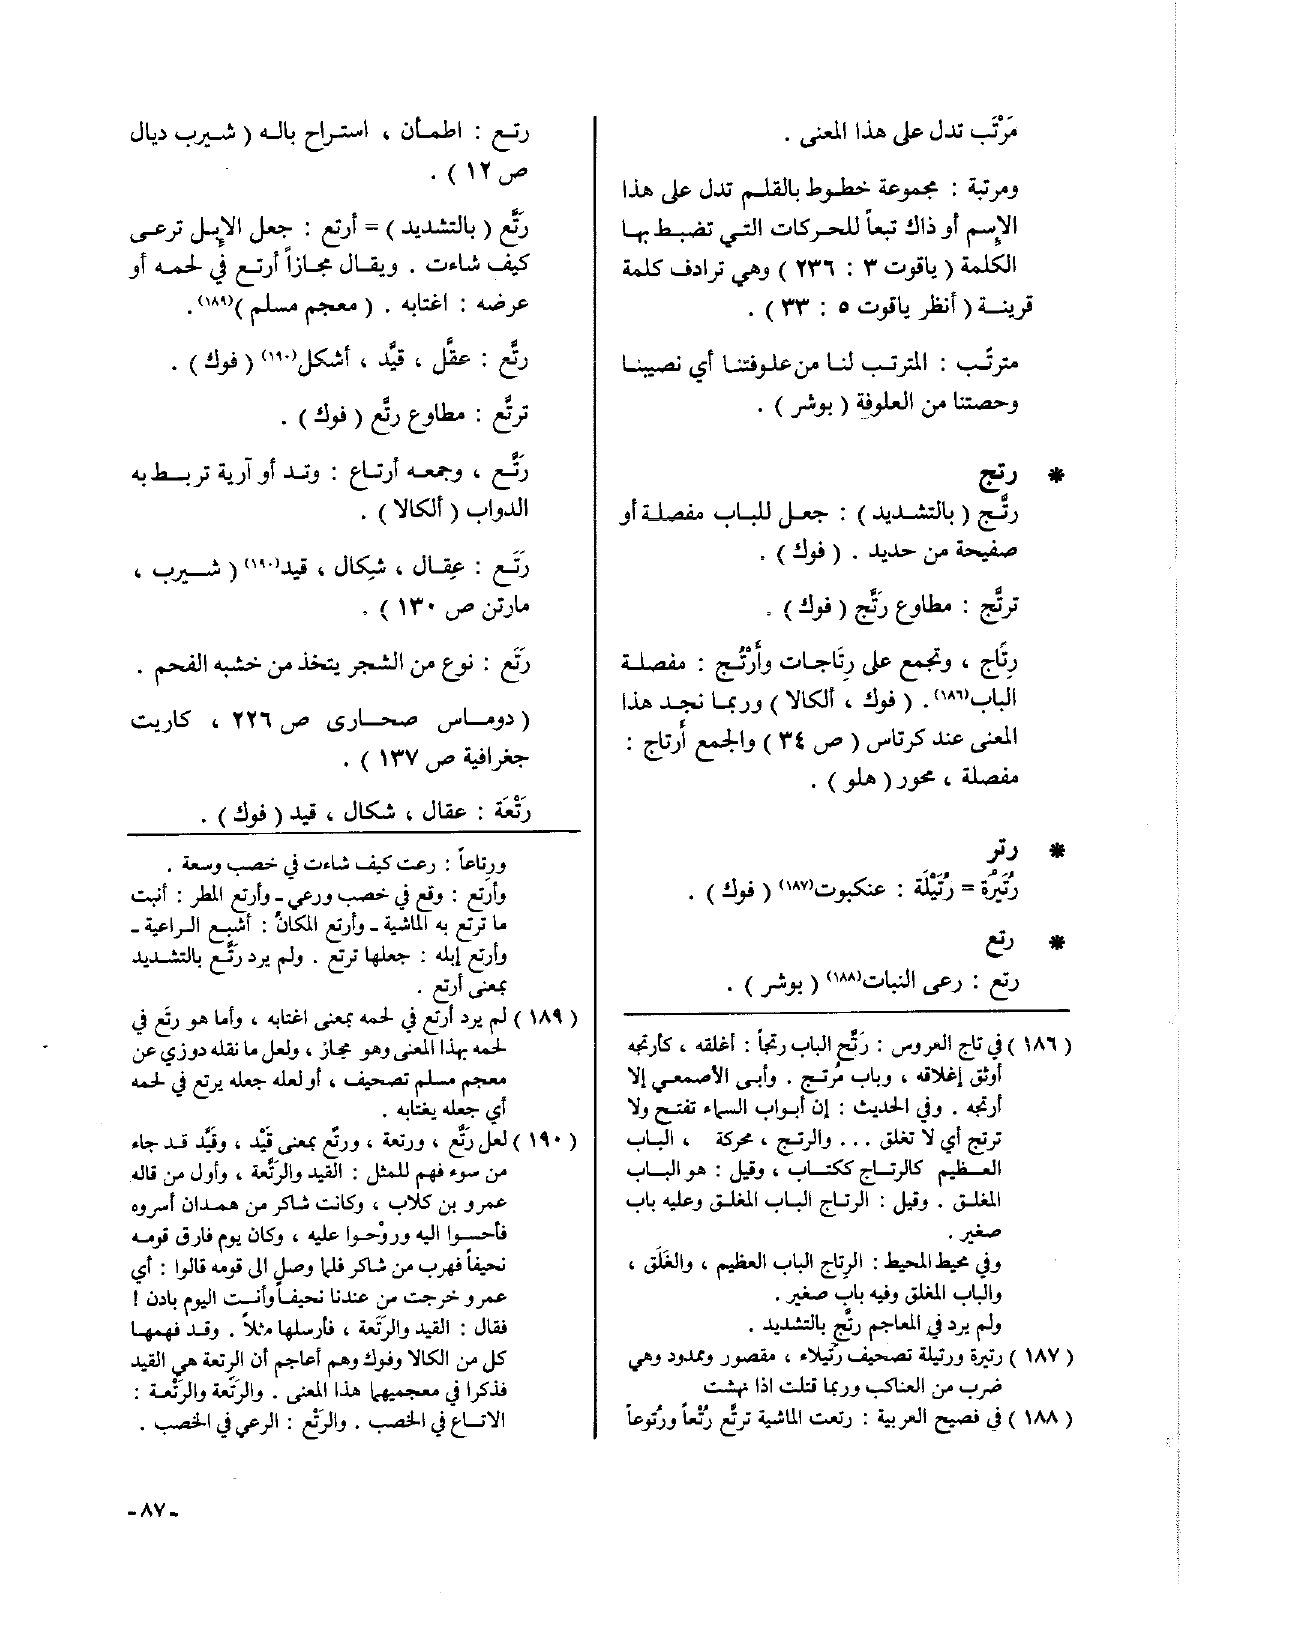 مَرْتَب تدل على هذا المعنى .
ومرتبة : مجموعة خطوط بالقلم تدل على هذا
الإسم أو ذاك تبعاً للحركات التي تضبط بها
الكلمة ( ياقوت ٣ : ٢٣٦ ) وهي ترادف كلمة
قرينة ( أنظر ياقوت ٥ : ٣٣ ) .
مترتَّب : المترتب لنا من علوفتنا أي نصيبنا
وحصتنا من العلوفة ( بوشر ) .
* رتج
رتَّج ( بالتشديد ) : جعل للباب مفصلة أو
صفيحة من حديد . ( فوك ) .
ترتَّج : مطاوع رَتَّج ( فوك ) .
رِتَاج ، وتجمع على رِتَاجات وأَرْتُج : مفصلة
الباب(١٨٦). ( فوك ، ألكالا ) وربما نجد هذا
المعنى عند كرتاس ( ص ٣٤ ) والجمع أَرتاج :
مفصلة ، محور ( هلو ) .
* رتر
رُتَيْرَة = رُتَيْلَة : عنكبوت(١٨٧) ( فوك ) .
* رتع
رتع : رعى النبات(١٨٨) ( بوشر ) .
( ١٨٦ ) في تاج العروس : رَتَّج الباب رتجاً : أغلقه ، كأرتجه
أوثق إغلاقه ، وباب مُرتج . وأبى الأصمعي إلا
أرتجه . وفي الحديث : إن أبواب السماء تفتح ولا
ترتج أي لا تغلق ... والرتج ، محركة ، الباب
العظيم كالرتاج ككتاب ، وقيل : هو الباب
المغلق . وقيل : الرتاج الباب المغلق وعليه باب
صغير .
وفي محيط المحيط : الرِتاج الباب العظيم ، والغَلَق ،
والباب المغلق وفيه باب صغير .
ولم يرد في المعاجم رتَّج بالتشديد .
( ١٨٧ ) رتيرة ورتيلة تصحيف رُتَيلاء ، مقصور وممدود وهي
ضرب من العناكب وربما قتلت اذا نهشت
( ١٨٨ ) في فصيح العربية : رتعت الماشية ترتَع رُتْعاً ورُتوعاً
رتع : اطمأن ، استراح باله ( شيرب ديال
ص ١٢ ) .
رَتَّع ( بالتشديد ) = أرتع : جعل الإبل ترعى
كيف شاءت . ويقال مجازاً أرتع في لحمه أو
عرضه : اغتابه . ( معجم مسلم )(١٨٩).
رتَّع : عقَّل ، قيَّد ، أشكل(١٩٠) ( فوك ) .
ترتَّع : مطاوع رتَّع ( فوك ) .
رَتَّع ، وجمعه أرتاع : وتد أو آرية تربط به
الدواب ( ألكالا ) .
رَتَع : عِقال ، شِكال ، قيد(١٩٠) ( شيرب ،
مارتن ص ١٣٠ ) .
رَتَع : نوع من الشجر يتخذ من خشبه الفحم .
( دوماس صحارى ص ٢٢٦ ، كاريت
جغرافية ص ١٣٧ ) .
رَتْعَة : عقال ، شكال ، قيد ( فوك ) .
ورِتاعاً : رعت كيف شاءت في خصب وسعة .
وأرتع : وقع في خصب ورعي - وأرتع المطر : أنبت
ما ترتع به الماشية - وأرتع المكانُ : أشبع الراعية -
وأرتع إبله : جعلها ترتع . ولم يرد رتَّع بالتشديد
بمعنى أرتع .
( ١٨٩ ) لم يرد أرتع في لحمه بمعنى اغتابه ، وأما هو رتَع في
لحمه بهذا المعنى وهو مجاز ، ولعل ما نقله دوزي عن
معجم مسلم تصحيف ، أو لعله جعله يرتع في لحمه
أي جعله يغتابه .
( ١٩٠ ) لعل رَتَّع ، ورتعة ، ورتَّع بمعنى قَيْد ، وقَيَّد قد جاء
من سوء فهم للمثل : القيد والرَتْعة ، وأول من قاله
عمرو بن كلاب ، وكانت شاكر من همدان أسروه
فأحسوا اليه وروّحوا عليه ، وكان يوم فارق قومه
نحيفاً فهرب من شاكر فلما وصل الى قومه قالوا : أي
عمرو خرجت من عندنا نحيفاً وأنت اليوم بادن !
فقال : القيد والرَتعة ، فأرسلها مثلاً . وقد فهمها
كل من الكالا وفوك وهم أعاجم أن الرتعة هي القيد
فذكرا في معجميهما هذا المعنى . والرَتَعة والرَتْعة :
الاتساع في الخصب . والرَتْع : الرعي في الخصب .
- ٨٧ -